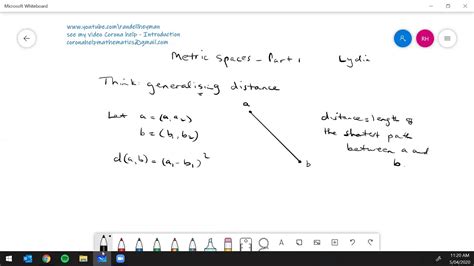 Microsoft Whiteboard
www.youtube.com\randellheyman
see my video Corona help - Introduction
coronahelpmathematics@gmail.com
RH
Metric Spaces - Part 1 Lydia
Think generalising distance
a
Let a = (a₁, a₂)
b = (b₁, b₂)
d(a, b) = (a₁ - b₁)²
b
distance = length of
the shortest path
between a and
b
11:20 AM
5/04/2020